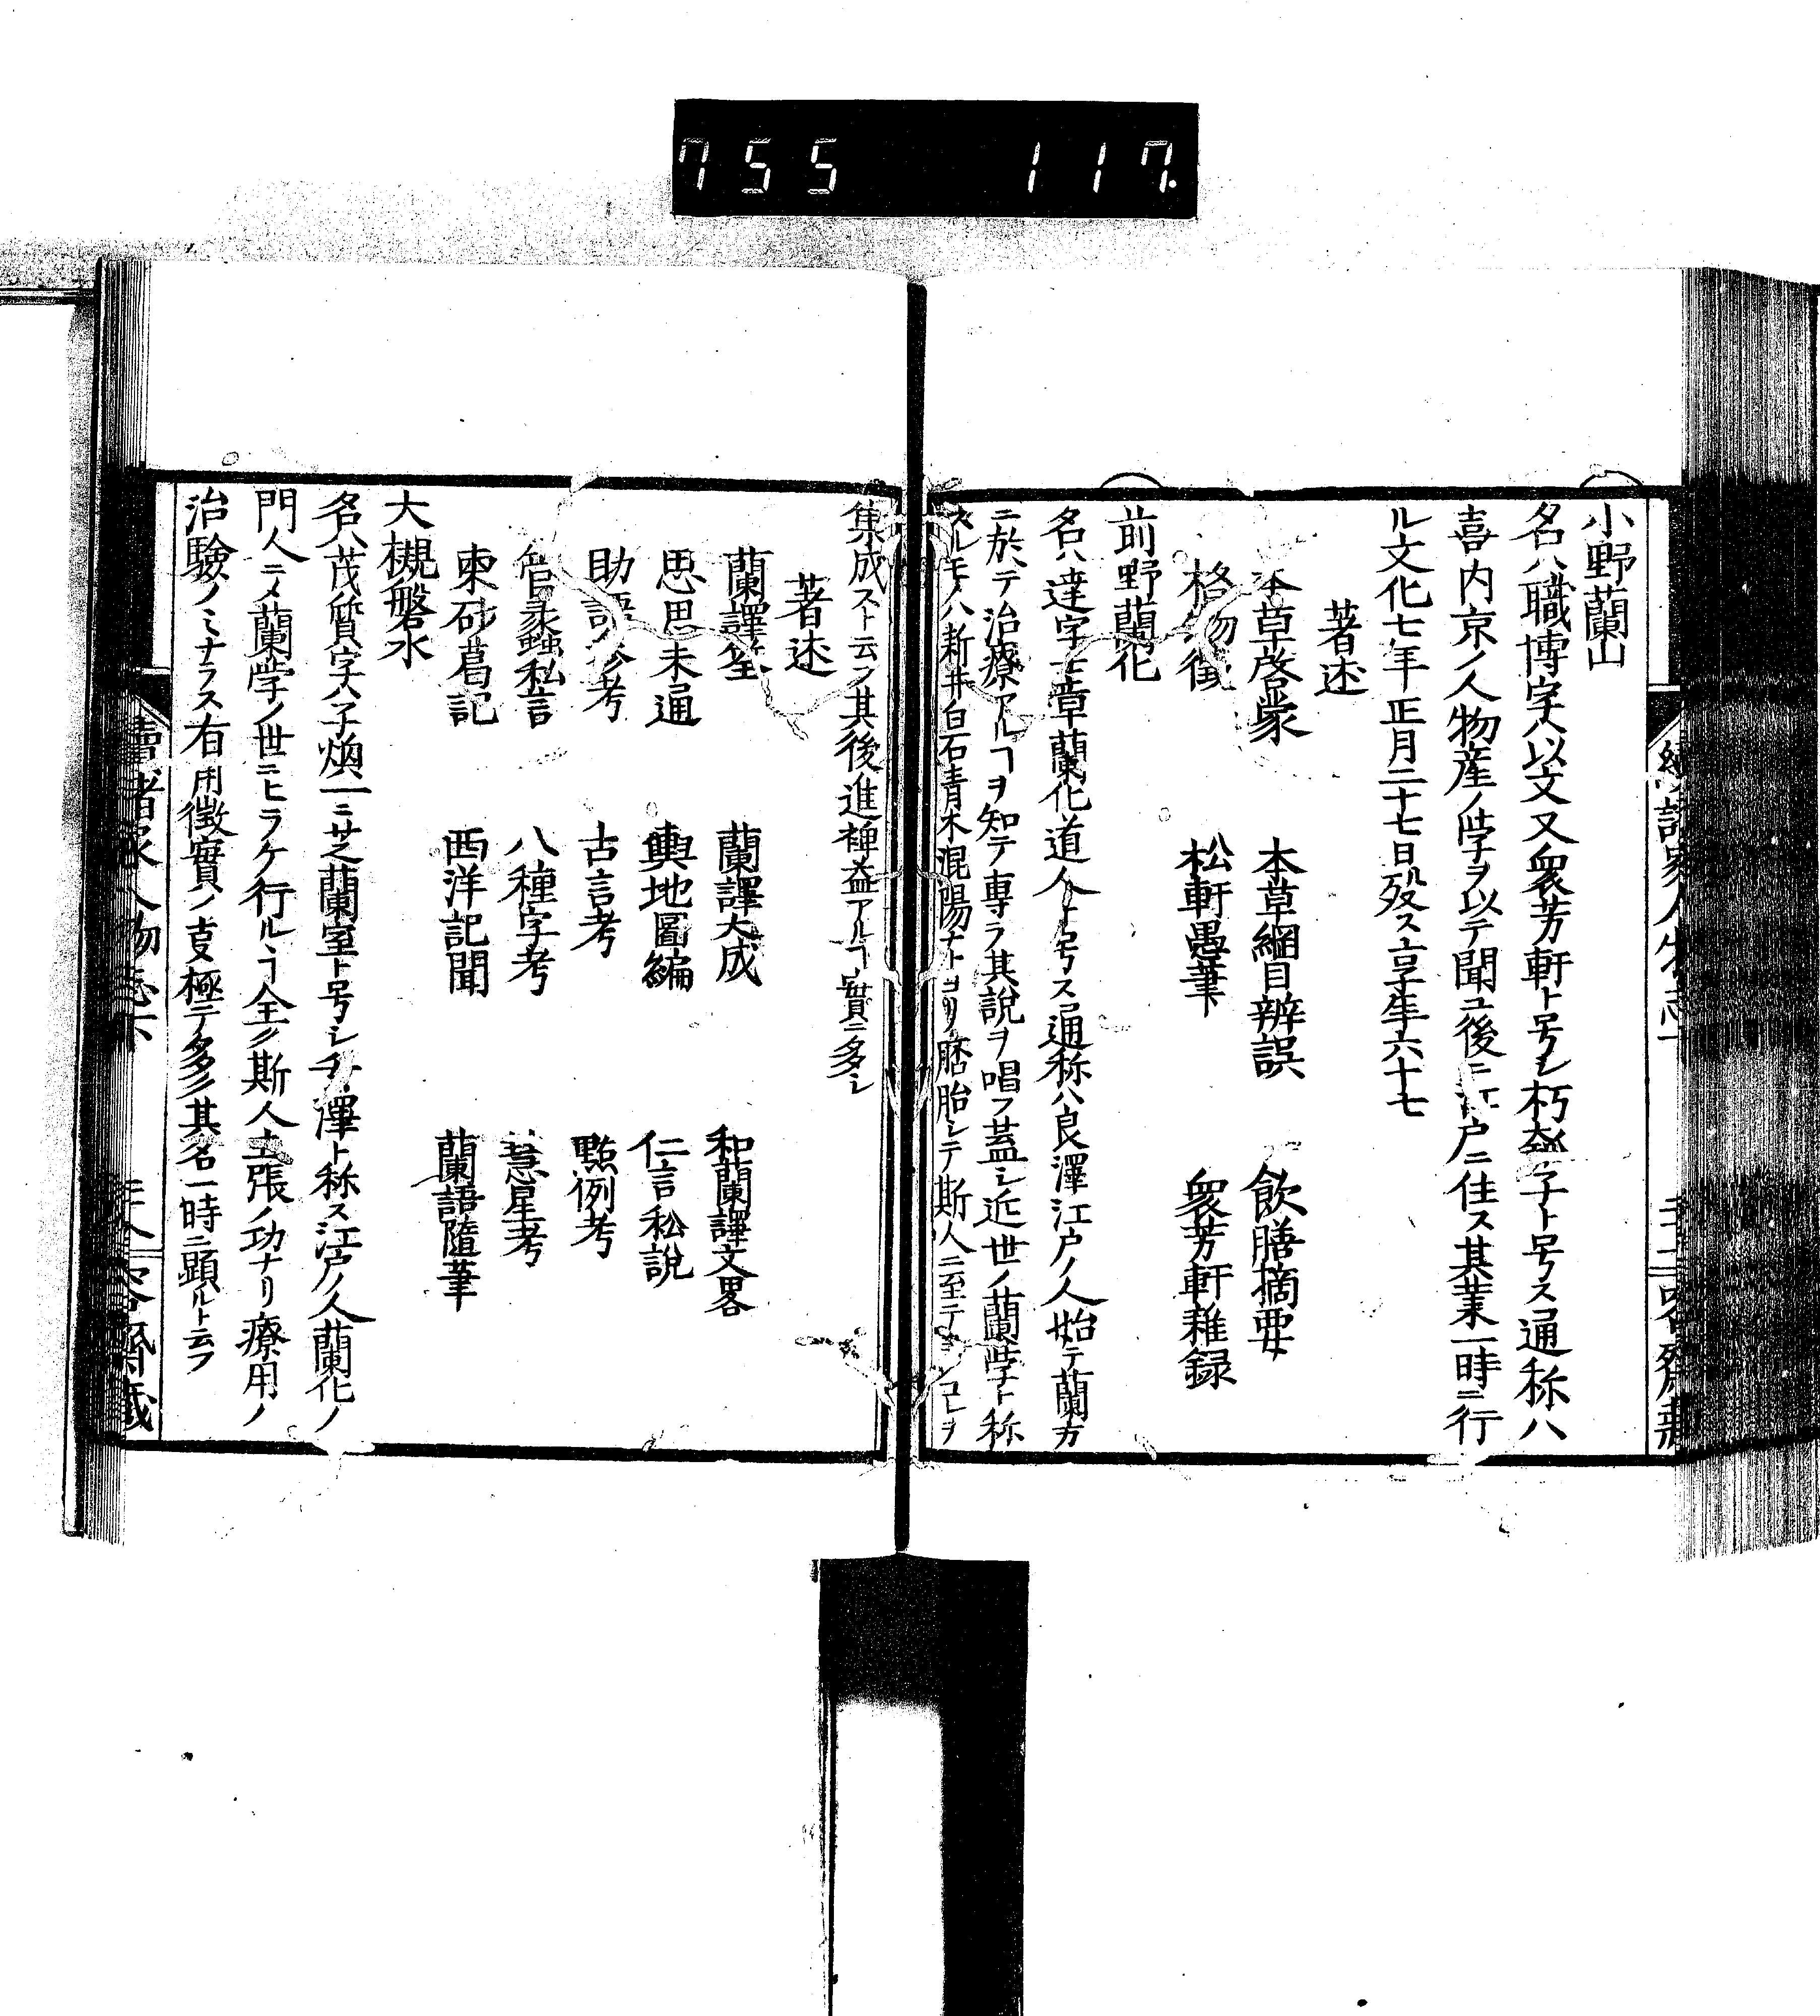 755 117
小野蘭山
名ハ職博字ハ以文又衆芳軒ト号シ朽匏子ト号ス通称ハ
喜内京ノ人物産ノ学ヲ以テ聞ユ後ニ江戸ニ住ス其業一時ニ行
ル文化七年正月二十七日歿ス享年六十七
著述
本草啓蒙 本草綱目辨誤 飲膳摘要
格物徴 松軒愚筆 衆芳軒雜録
前野蘭化
名ハ達字士章蘭化道人ト号ス通称ハ良澤江戸ノ人始テ蘭方
ニ於テ治療アルヿヲ知テ専ラ其説ヲ唱フ蓋シ近世ノ蘭学ト称
スルモノハ新井白石青木混陽ナトヨリ胚胎シテ斯人ニ至テコレヲ
集成スト云フ其後進裨益アルヿ實ニ多シ
著述
蘭譯筌 蘭譯大成 和蘭譯文畧
思思未通 輿地圖編 仁言私説
助語参考 古言考 點例考
管蠡私言 八種字考 彗星考
柬砂葛記 西洋記聞 蘭語隨筆
大槻磐水
名ハ茂質字ハ子煥一ニ芝蘭室ト号シ玄澤ト称ス江戸ノ人蘭化ノ
門人ニメ蘭学ノ世ニヒラケ行ルヽヿ全ク斯人主張ノ功ナリ療用ノ
治験ノミナラス有用徴實ノ支極テ多シ其名一時ニ顕ルト云フ
續諸家人物志下